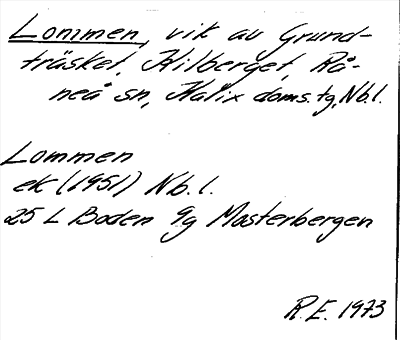 Lommen, vik av Grund-
träsket, Hilberget, Rå-
neå sn, Kalix doms.tg, Nb.l.
Lommen
ek (1951) Nb.l.
25 L Boden 9g Mosterbergen
R.E. 1973